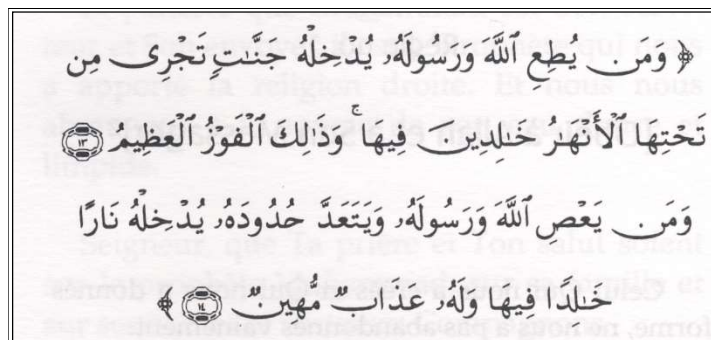 ﴿ وَمَن يُطِعِ ٱللَّهَ وَرَسُولَهُۥ يُدْخِلْهُ جَنَّٰتٍ تَجْرِى مِن
تَحْتِهَا ٱلْأَنْهَٰرُ خَٰلِدِينَ فِيهَا ۚ وَذَٰلِكَ ٱلْفَوْزُ ٱلْعَظِيمُ ١٣
وَمَن يَعْصِ ٱللَّهَ وَرَسُولَهُۥ وَيَتَعَدَّ حُدُودَهُۥ يُدْخِلْهُ نَارًا
خَٰلِدًا فِيهَا وَلَهُۥ عَذَابٌ مُّهِينٌ ١٤ ﴾